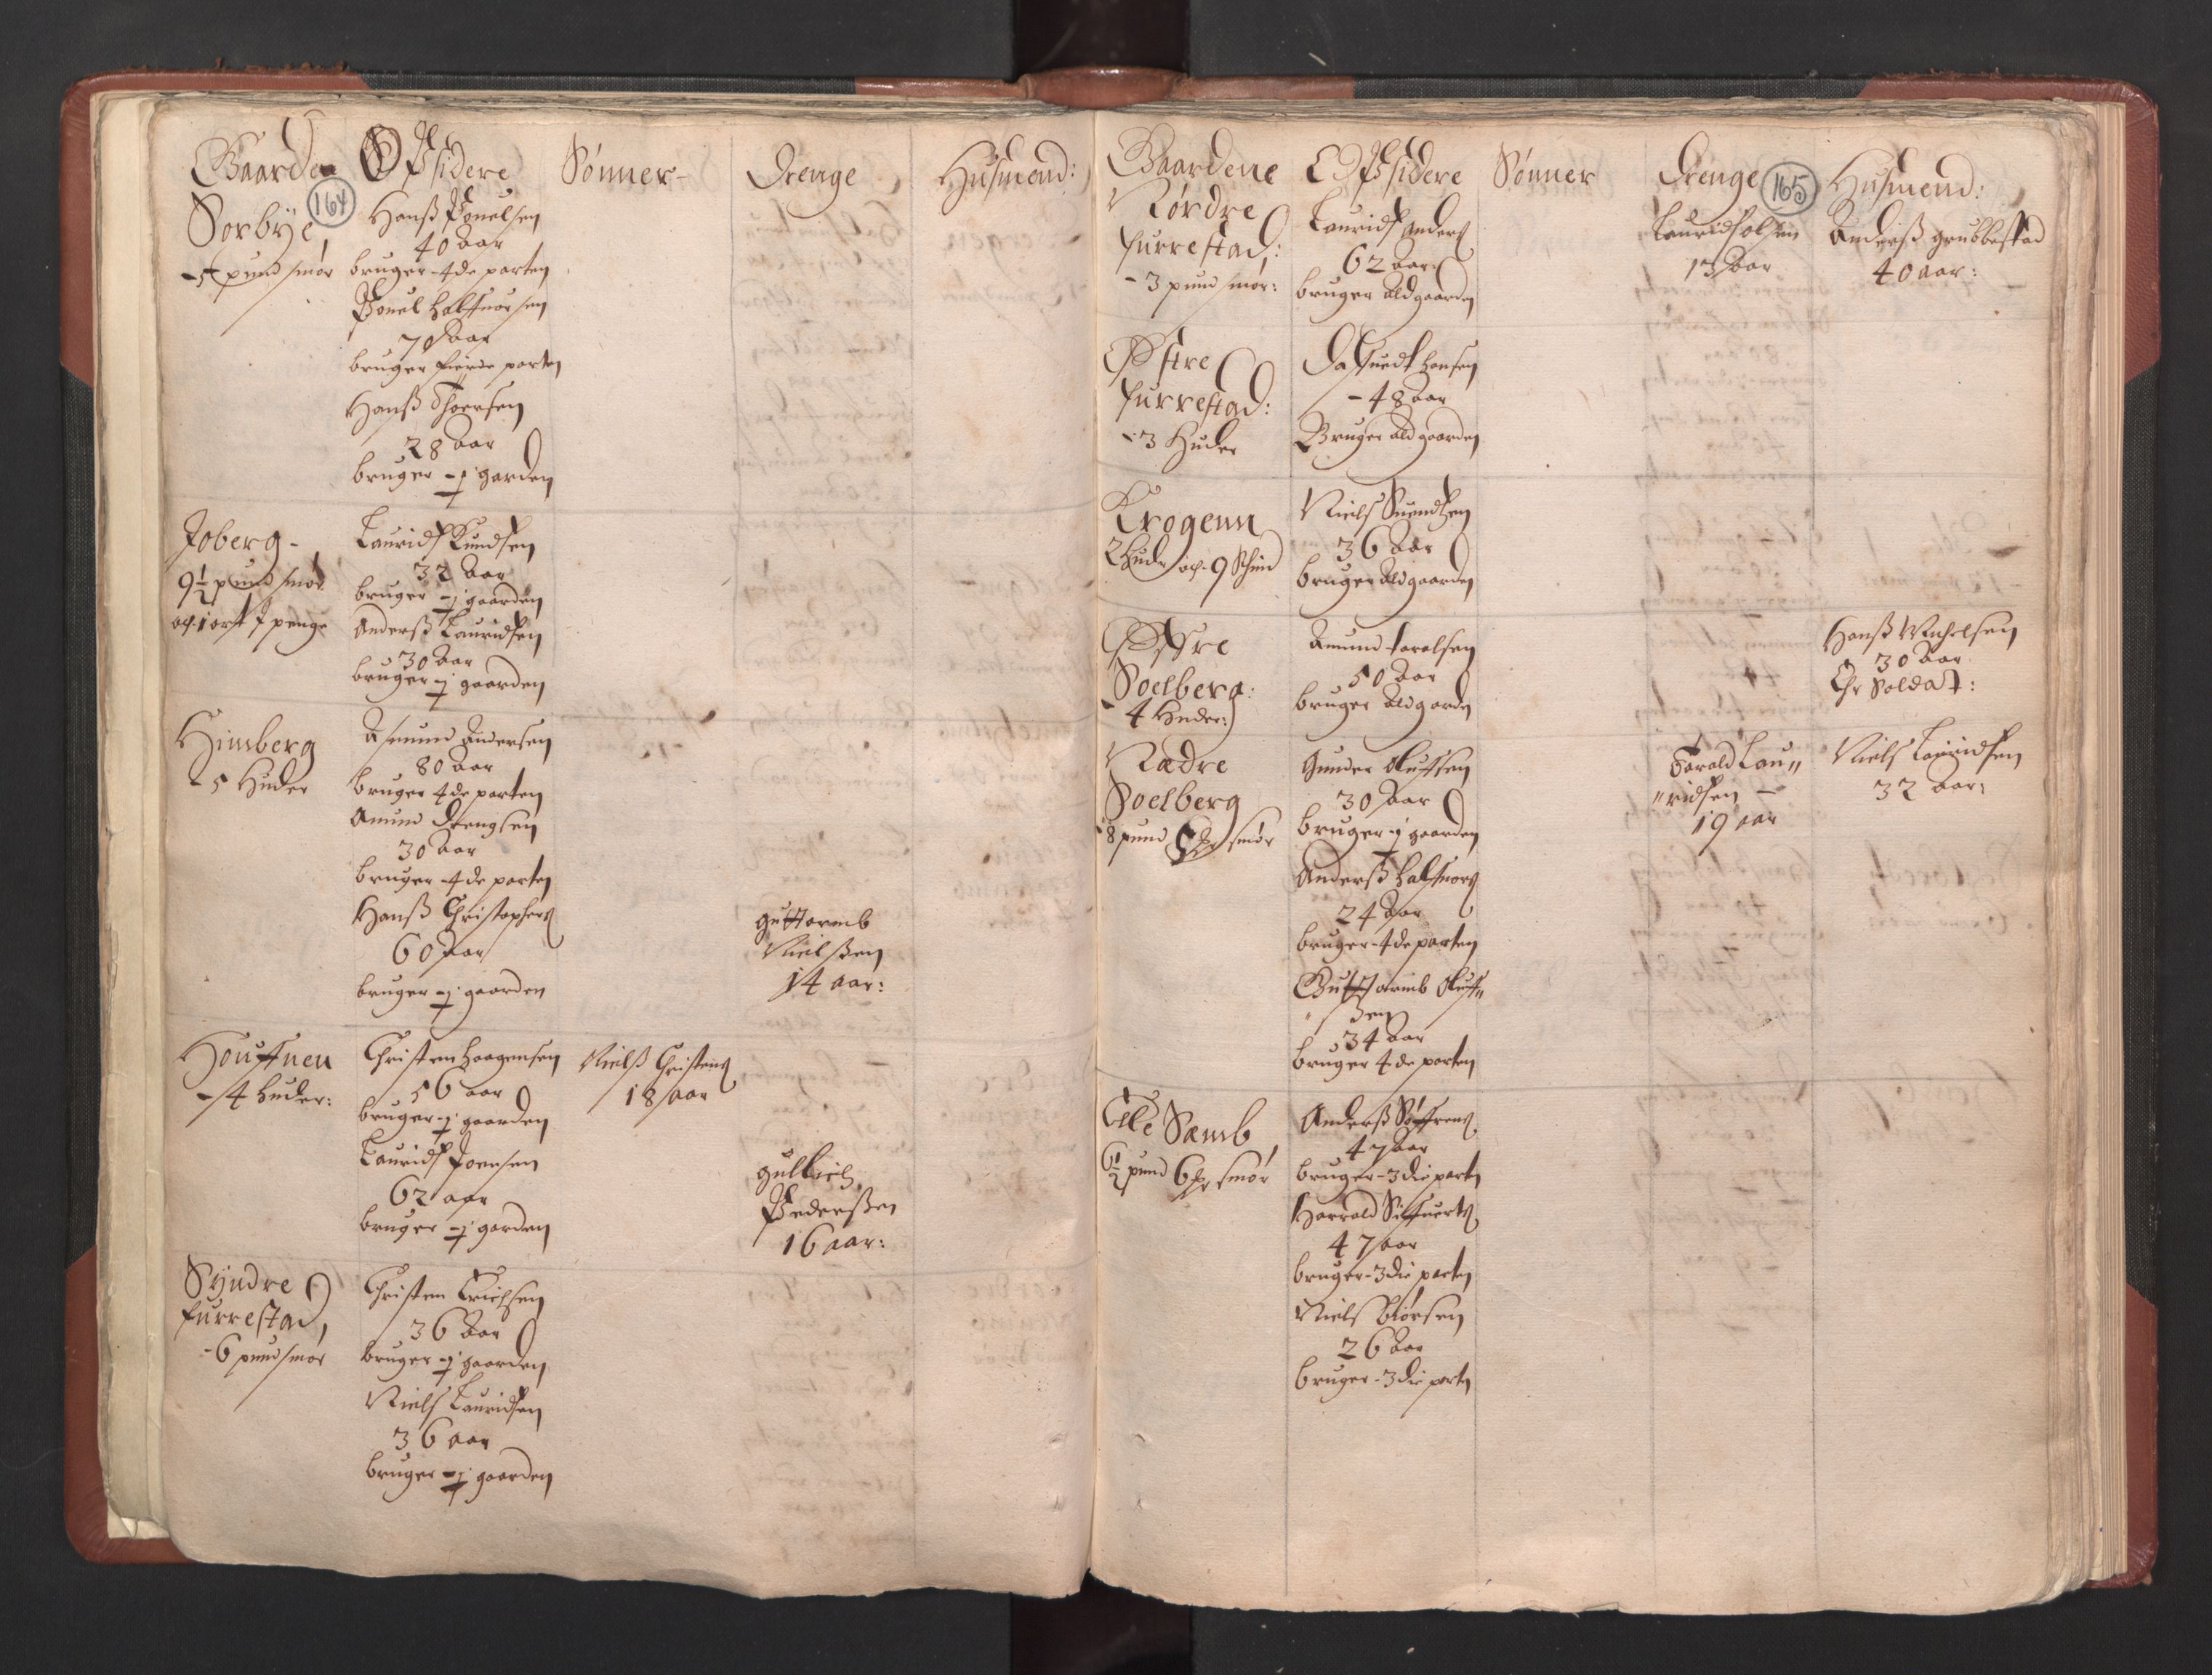 Gaarden
Opsidere
Sønner
Drenge
Husmend:
164
Sorbye
5 pund smør
Hanß Pouelsen
40 Aar
bruger 4de parten
Pouel Halfuorsen
70 Aar
bruger fierde parten
Hanß Thoersen
28 Aar
bruger ½ garden
Joberg
9½ pund smør
och 1 ort 7 penge
Lauridß Knudsen
32 Aar
bruger ½ gaarden
Anderß Lauridsen
30 Aar
bruger ½ gaarden
Himberg
5 Huder
Asmund Andersen
80 Aar
bruger 4de parten
Amund Drengsen
30 Aar
bruger 4de parten
Hanß Christophers
60 Aar
bruger ½ gaarden
Guttormb
Nielßen
14 aar:
Houffnen
4 huder:
Christen Haagensen
56 aar
bruger ½ gaarden
Nielß Christens
18 aar
Lauridß Joensen
62 aar
bruger ½ garden
Gulbich
Pederßen
16 aar:
Syndre
furrestad,
6 pund smør
Christen Erichsen
36 Aar
bruger ½ gaarden
Niels Lauridsen
36 aar
bruger ½ gaarden
Gaardene
Opsidere
Sønner
Drenge
165
Husmend:
Nørdre
furrestad:
3 pund smør:
Lauridß Anders
62 Aar
bruger ald gaarden
Lauridß olsen
13 Aar
Anderß grubbestad
40 aar:
Østre
furrestad:
3 Huder
Hansen
48 Aar
Bruger ald gaarden
Krogenn
2 Huder och 9 Schind
Niels Suendsen
36 Aar
bruger Ald gaarden
Øffre
Soelberg:
4 Huder:
Amund taralsen
50 Aar
bruger Ald garden
Hanß Michelsen
30 Aar
Er Soldat:
Nædre
Soelberg
8 pund smør
Gunder Olufsen
30 Aar
bruger ½ gaarden
Tarald Lau=
=ridsen
19 aar
Niels Lauridsen
32 Aar:
Anderß Halfuors
24 Aar
bruger 4de parten
Guttormb Oluf=
=sen
34 Aar
bruger 4de parten
Elle Sæmb
6½ pund 6 smør
Anderß Søffrens
47 Aar
bruger 3die parten
Harrald Siffuerts
47 aar
bruger 3die parten
Niels Biørsen
26 Aar
bruger 3die parten